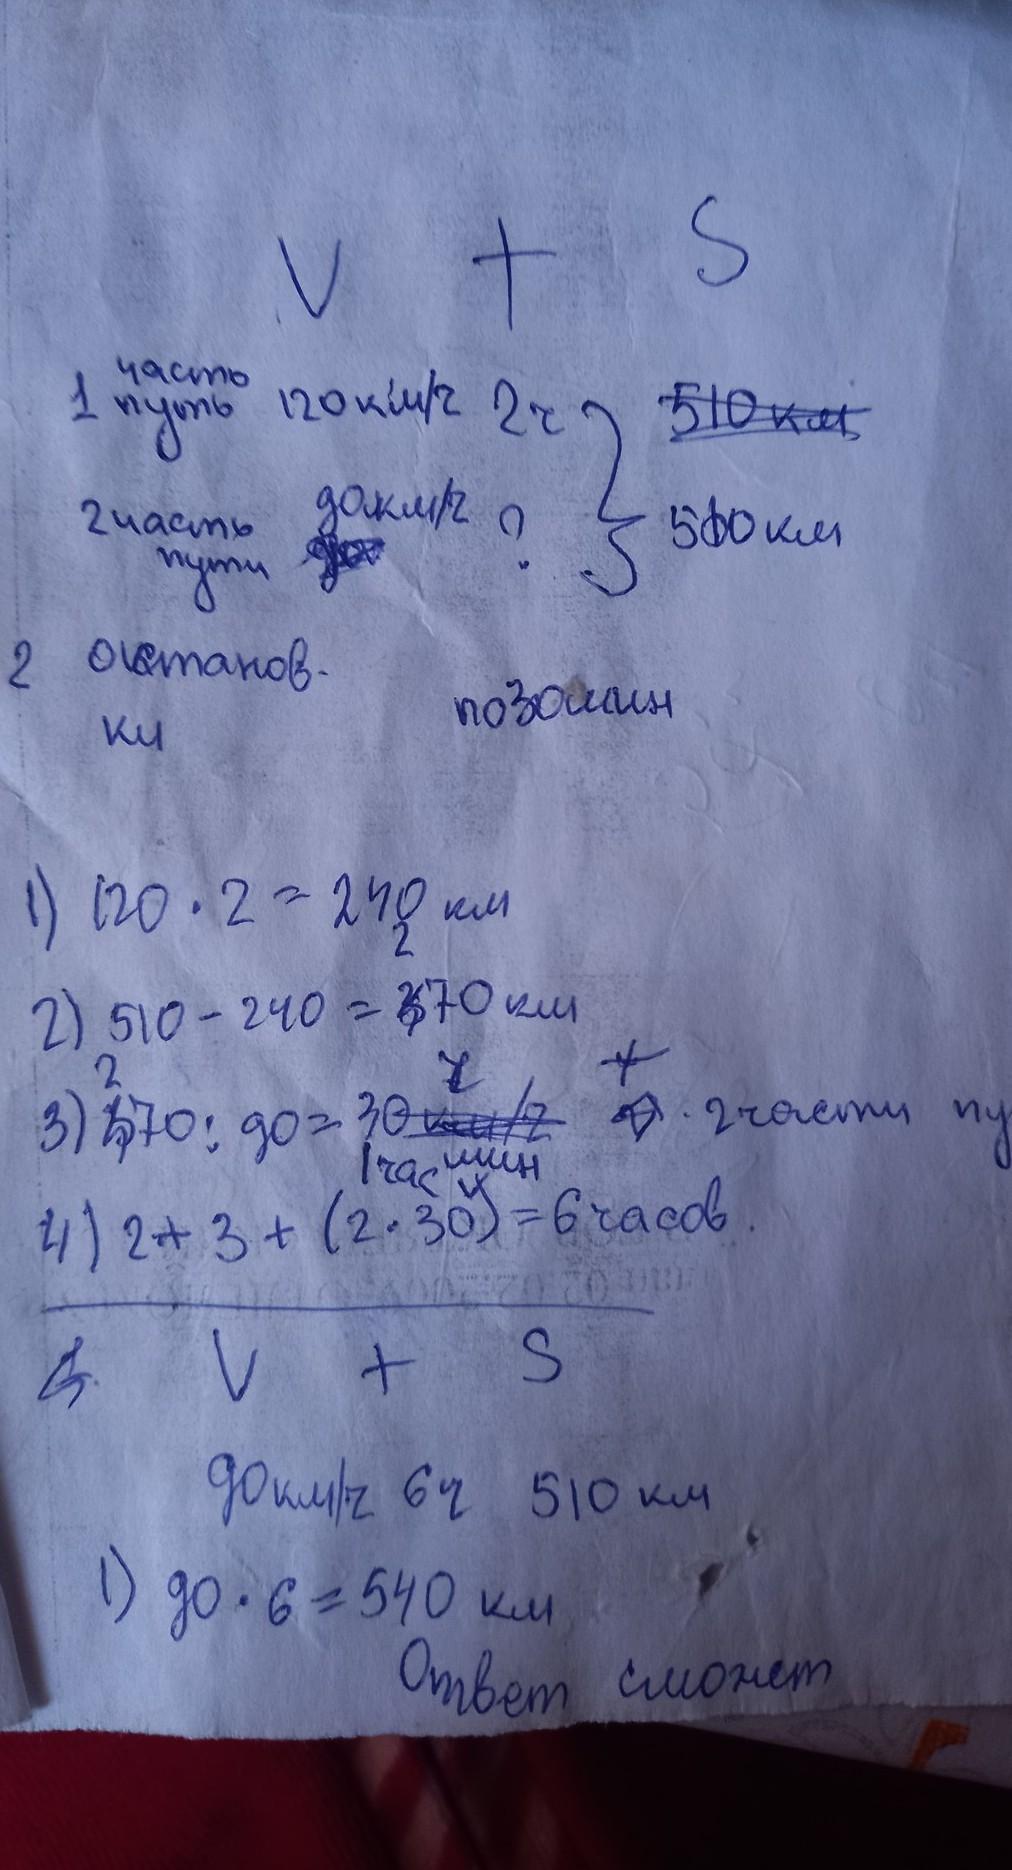 V t S
1 часть
путь 120 км/ч 2ч 510 км
2 часть 90 км/ч ? 510 км
пути
2 останов-
ки по 30 мин
1) 120 · 2 = 240 км
2) 510 - 240 = 270 км
3) 270 : 90 = 3 ч t 2 части пу
1 час мин
4) 2 + 3 + (2 · 30) = 6 часов.
V t S
90 км/ч 6ч 510 км
1) 90 · 6 = 540 км
Ответ сможет